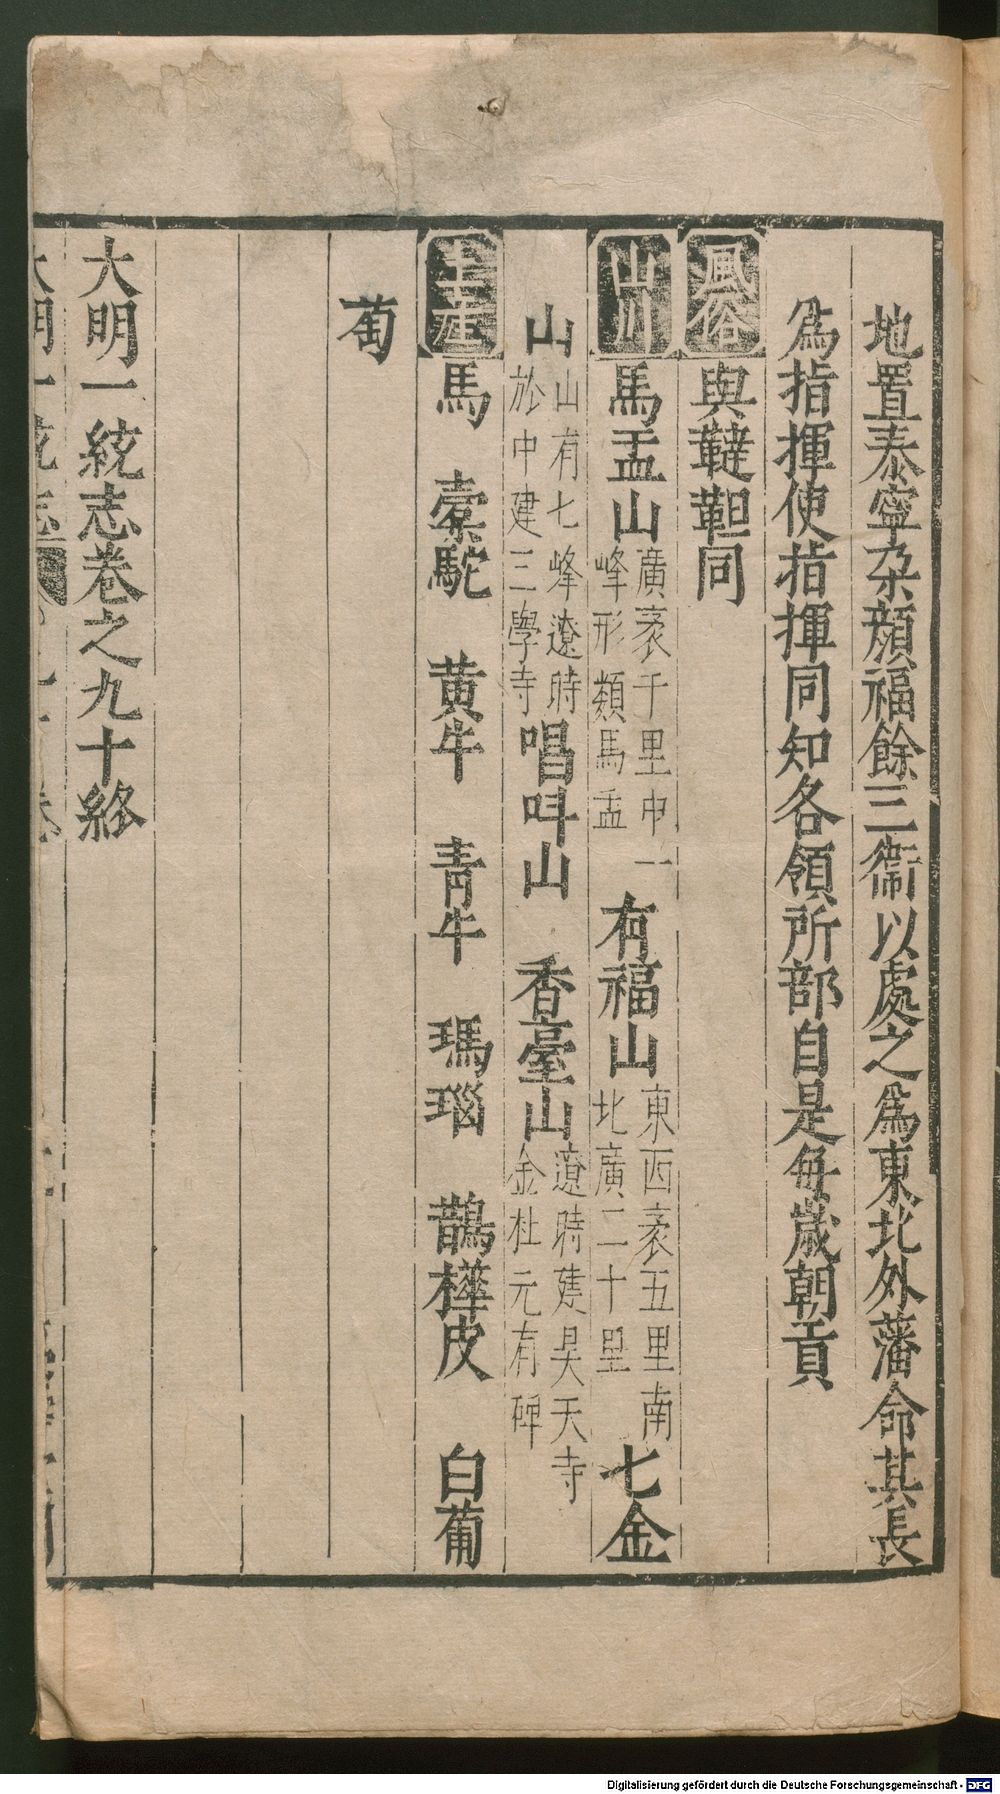 地置泰寧朶顔福餘三衞以處之爲東北外藩命其長
爲指揮使指揮同知各領所部自是每歲朝貢
風俗與韃靼同
山川馬盂山廣袤千里中一峰形類馬盂有福山東西袤五里南北廣二十里七金
山山有七峰遼時於中建三學寺唱呌山香臺山遼時建昊天寺金杜元有碑
土產馬 橐駝 黄牛 青牛 瑪瑙 鵲樺皮 白葡
萄
大明一統志卷之九十終
大明一統志
Digitalisierung gefördert durch die Deutsche Forschungsgemeinschaft - DFG